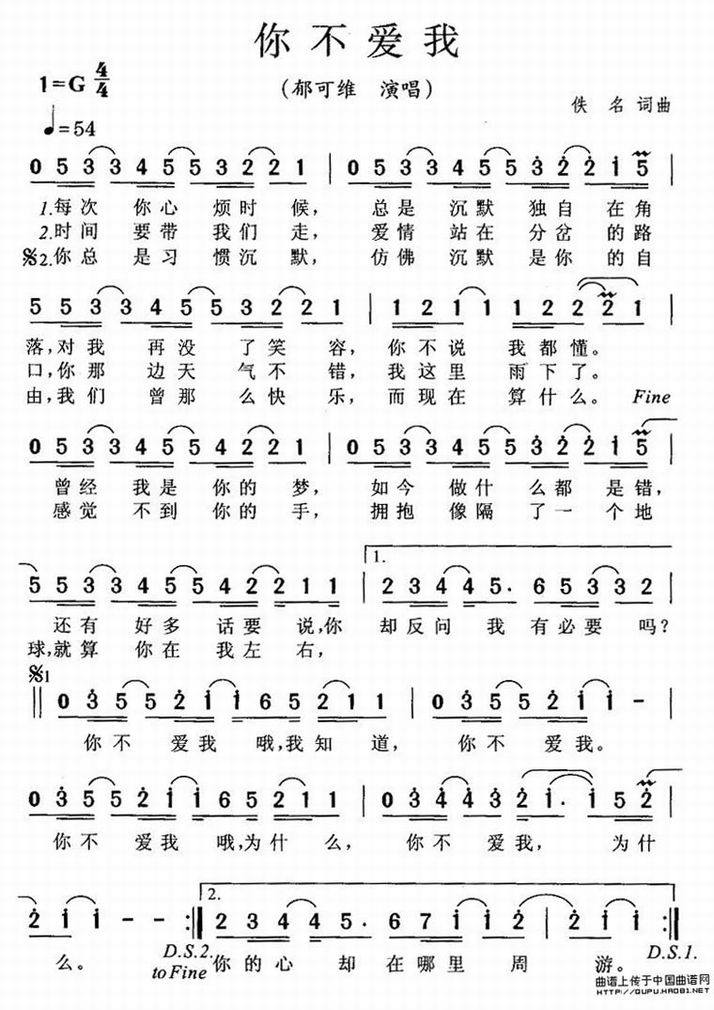 你不爱我
1=G 4/4
(郁可维 演唱)
佚 名 词曲
♩=54
0 5 3 3 4 5 5 3 2 2 1 | 0 5 3 3 4 5 5 3 2 2 1 5 |
1.每次 你心 烦时 候, 总是 沉默 独自 在角
2.时间 要带 我们 走, 爱情 站在 分岔 的路
𝄋2.你总 是习 惯沉 默, 仿佛 沉默 是你 的自
5 5 3 3 4 5 5 3 2 2 1 | 1 2 1 1 1 2 2 2 1 |
落,对我 再没 了笑 容, 你不说 我都懂。
口,你那 边天 气不 错, 我这里 雨下了。
由,我们 曾那 么快 乐, 而现在 算什么。 Fine
0 5 3 3 4 5 5 4 2 2 1 | 0 5 3 3 4 5 5 3 2 2 1 5 |
曾经 我是 你的 梦, 如今 做什 么都 是错,
感觉 不到 你的 手, 拥抱 像隔 了一 个地
1.
5 5 3 3 4 5 5 4 2 2 1 1 | 2 3 4 4 5. 6 5 3 3 2 |
还有 好多 话要 说,你 却反问 我 有必要 吗?
球,就算 你在 我左 右,
𝄋1
0 3 5 5 2 1 1 6 5 2 1 1 | 0 3 5 5 2 1 1 - |
你不 爱我 哦,我知 道, 你不 爱我。
0 3 5 5 2 1 1 6 5 2 1 1 | 0 3 4 4 3 2 1. 1 5 2 |
你不 爱我 哦,为什 么, 你不 爱我, 为什
2.
2 1 1 - - :| 2 3 4 4 5. 6 7 1 1 2 2 1 :|
么。 D.S.2. to Fine 你的心 却在哪里 周 游。 D.S.1.
曲谱上传于中国曲谱网
HTTP://QUPU.HAO81.NET